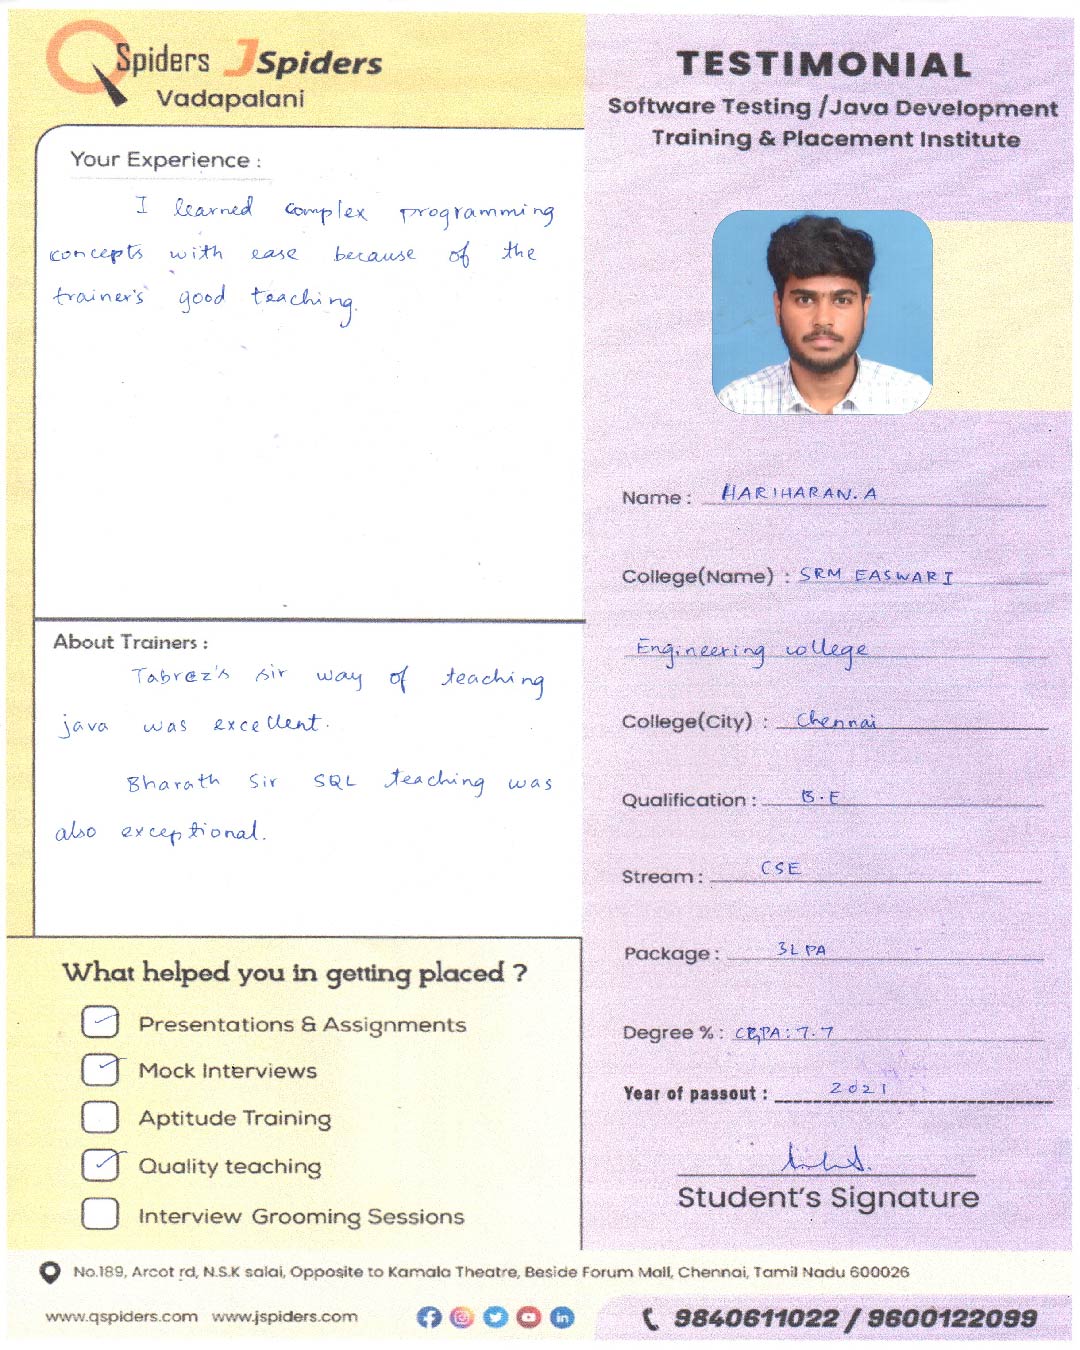 QSpiders JSpiders
Vadapalani
Your Experience :
I learned complex programming
concepts with ease because of the
trainer's good teaching.
About Trainers :
Tabrez's sir way of teaching
java was excellent.
Bharath Sir SQL teaching was
also exceptional.
What helped you in getting placed ?
Presentations & Assignments
Mock Interviews
Aptitude Training
Quality teaching
Interview Grooming Sessions
TESTIMONIAL
Software Testing /Java Development
Training & Placement Institute
Name : HARIHARAN.A
College(Name) : SRM EASWARI
Engineering college
College(City) : Chennai
Qualification : B.E
Stream : CSE
Package : 3LPA
Degree % : CGPA: 7.7
Year of passout : 2021
Student's Signature
No.189, Arcot rd, N.S.K salai, Opposite to Kamala Theatre, Beside Forum Mall, Chennai, Tamil Nadu 600026
www.qspiders.com www.jspiders.com
9840611022 / 9600122099